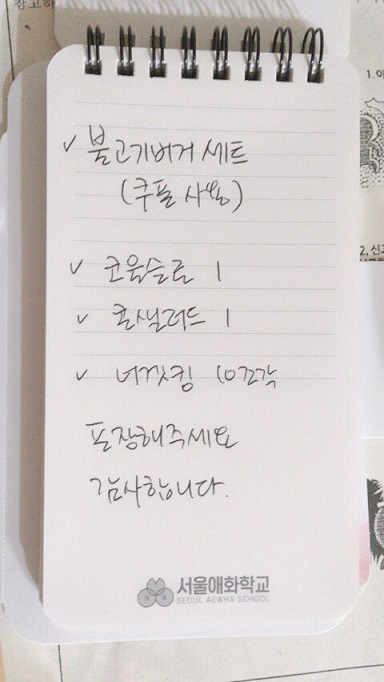 ✓ 불고기버거 세트
(쿠폰 사용)
✓ 코울슬로 1
✓ 콘샐러드 1
✓ 너겟킹 10조각
포장해주세요
감사합니다.
서울애화학교
SEOUL AEWHA SCHOOL
참고하
1. 이
2. 신고